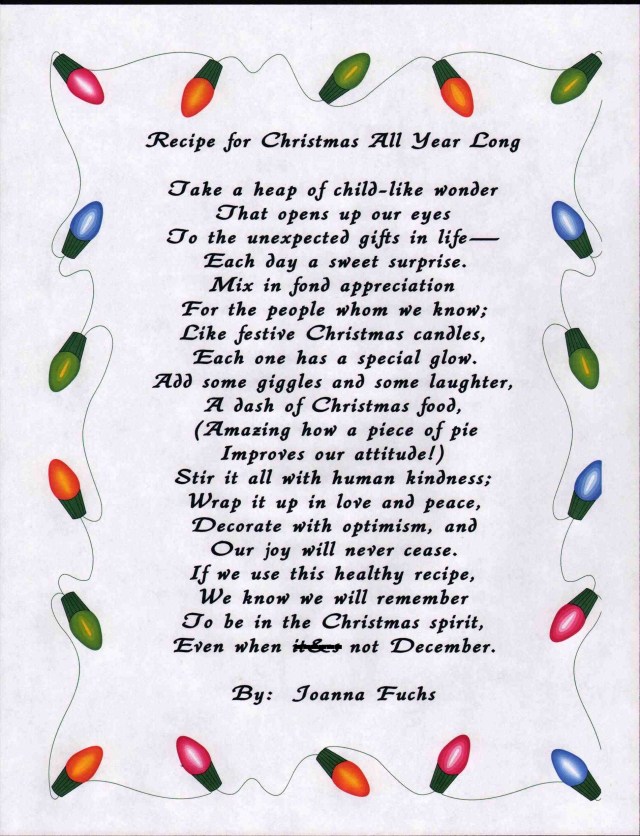 Recipe for Christmas All Year Long
Take a heap of child-like wonder
That opens up our eyes
To the unexpected gifts in life—
Each day a sweet surprise.
Mix in fond appreciation
For the people whom we know;
Like festive Christmas candles,
Each one has a special glow.
Add some giggles and some laughter,
A dash of Christmas food,
(Amazing how a piece of pie
Improves our attitude!)
Stir it all with human kindness;
Wrap it up in love and peace,
Decorate with optimism, and
Our joy will never cease.
If we use this healthy recipe,
We know we will remember
To be in the Christmas spirit,
Even when not December.
By: Joanna Fuchs